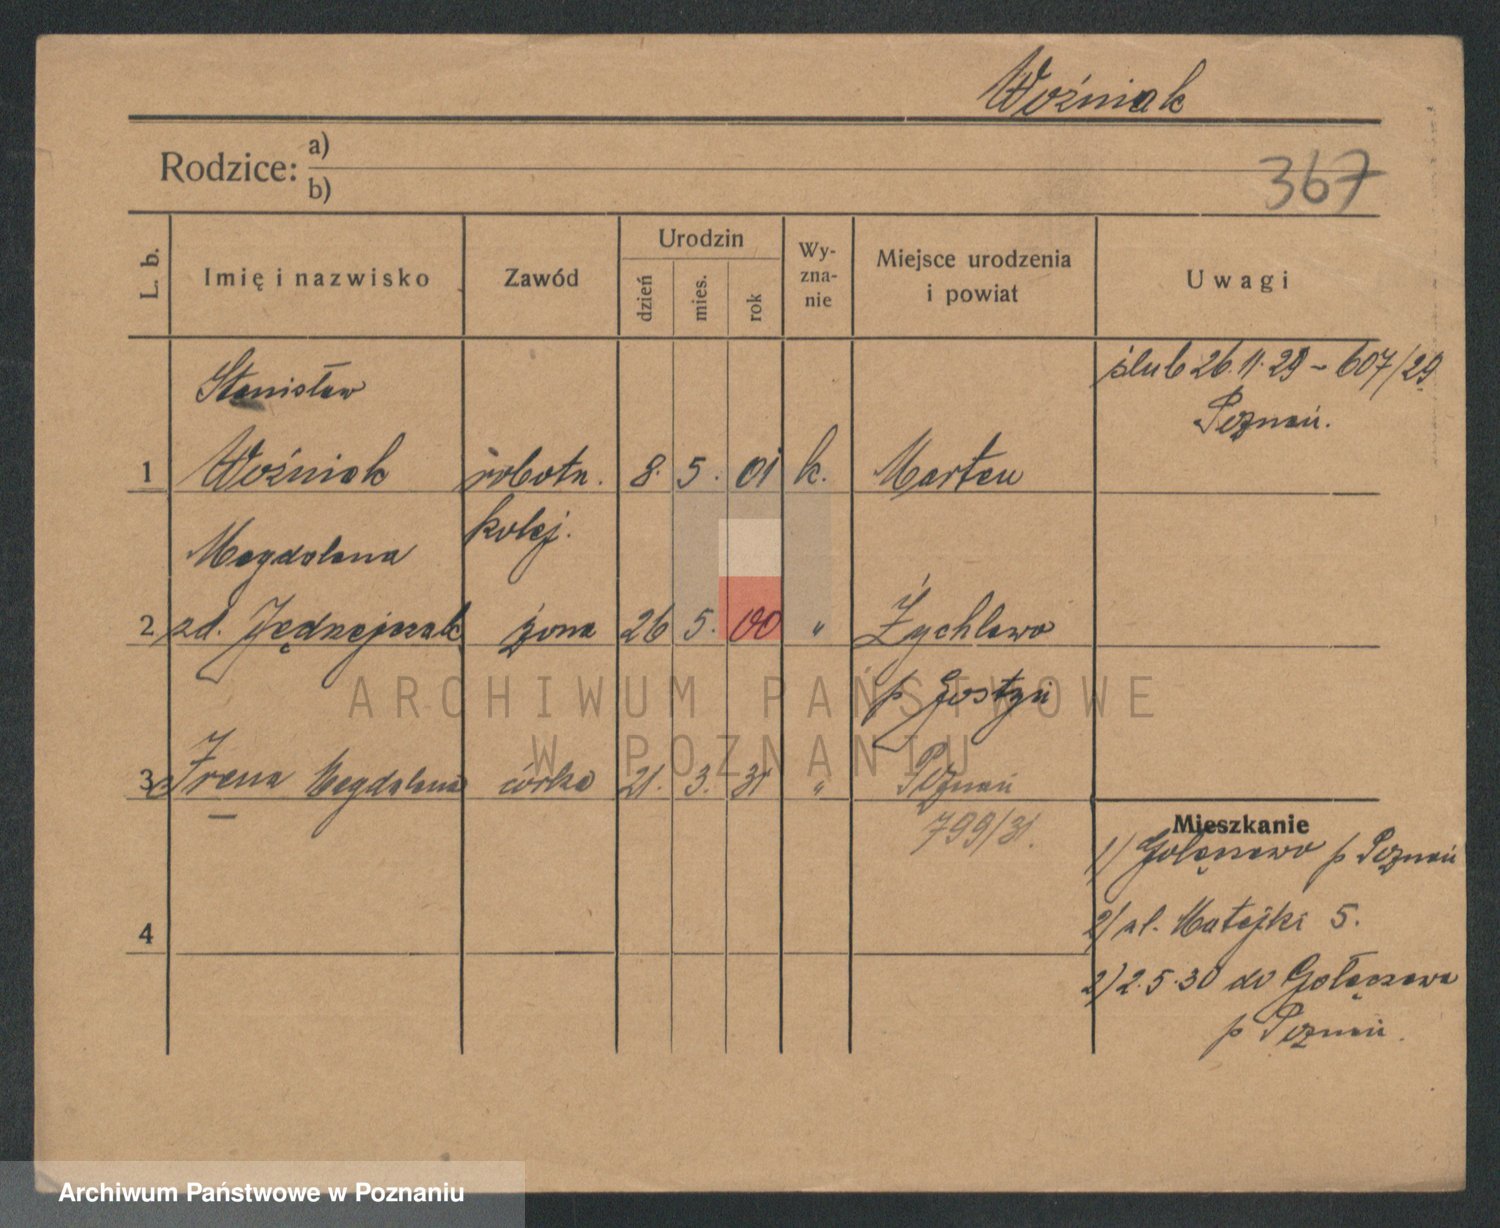 Woźniak
Rodzice: a)
b)
367
L. b.
Imię i nazwisko
Zawód
Urodzin
dzień
mies.
rok
Wy-
zna-
nie
Miejsce urodzenia
i powiat
Uwagi
Stanisław
ślub 26.11.29 - 607/29
Poznań.
1 Woźniak robotn. 8. 5. 01 k. Marten
kolej.
Magdalena
2 zd. Jędrzejczak żona 26 5. 00 " Żychlewo
p Gostyń
ARCHIWUM PAŃSTWOWE
W POZNANIU
3 Irena Magdalena córka 21. 3. 31 " Poznań
799/31.
Mieszkanie
1) Golęczewo p Poznań
2) ul. Matejki 5.
4
2) 2.5.30 do Gołęczewa
p Poznań.
Archiwum Państwowe w Poznaniu